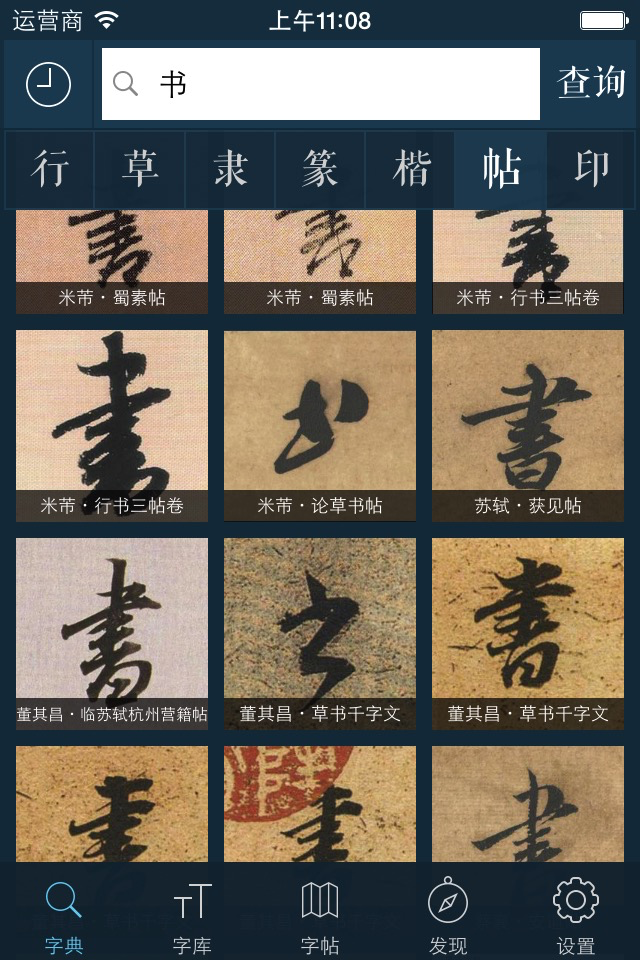 运营商 上午11:08
书 查询
行 草 隶 篆 楷 帖 印
書 書 書
米芾·蜀素帖 米芾·蜀素帖 米芾·行书三帖卷
書 书 書
米芾·行书三帖卷 米芾·论草书帖 苏轼·获见帖
書 书 書
董其昌·临苏轼杭州营籍帖 董其昌·草书千字文 董其昌·草书千字文
書 書 書
字典 字库 字帖 发现 设置